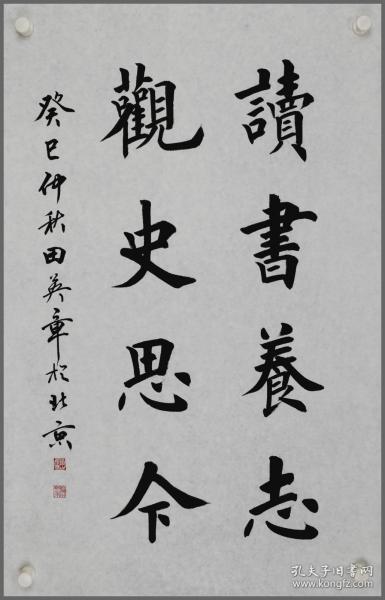 讀書養志
觀史思今
癸巳仲秋田英章於北京
孔夫子旧书网
www.kongfz.com